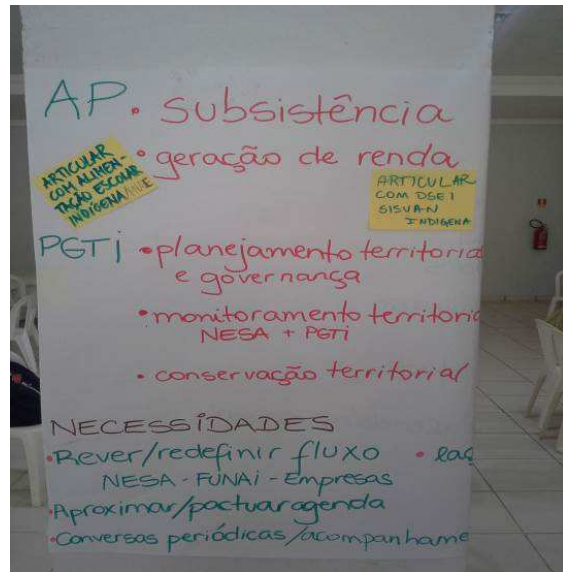 AP • subsistência
• geração de renda
ARTICULAR
COM ALIMEN-
TAÇÃO ESCOLAR
INDÍGENA
ARTICULAR
COM DSEI
SISVAN
INDÍGENA
PGTi • planejamento territoria
e governança
• monitoramento territori
NESA + PGTi
• conservação territorial
NECESSiDADES
• Rever/redefinir fluxo
NESA - FUNAi - Empresas
• Aproximar/pactuar agenda
• Conversas periódicas/acompanhame